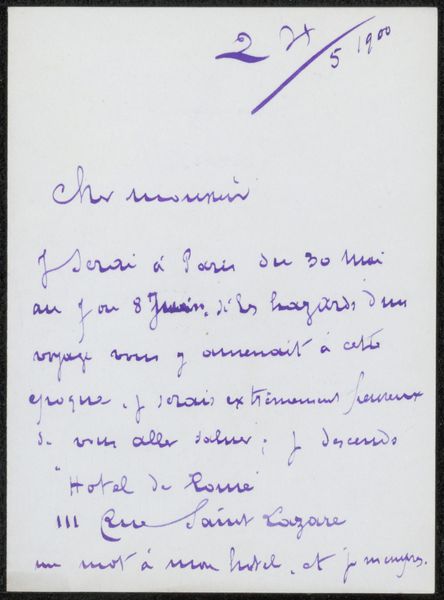 2 /5 1900
Cher monsieur
J serai à Paris du 30 Mai
au 7 ou 8 Juin, si les hazards d'un
voyage vous y amenait à cette
époque, j serais extrêmement heureux
de vous aller saluer; j descends
"Hotel de Rome"
111 Rue Saint Lazare
un mot à mon hotel, et j